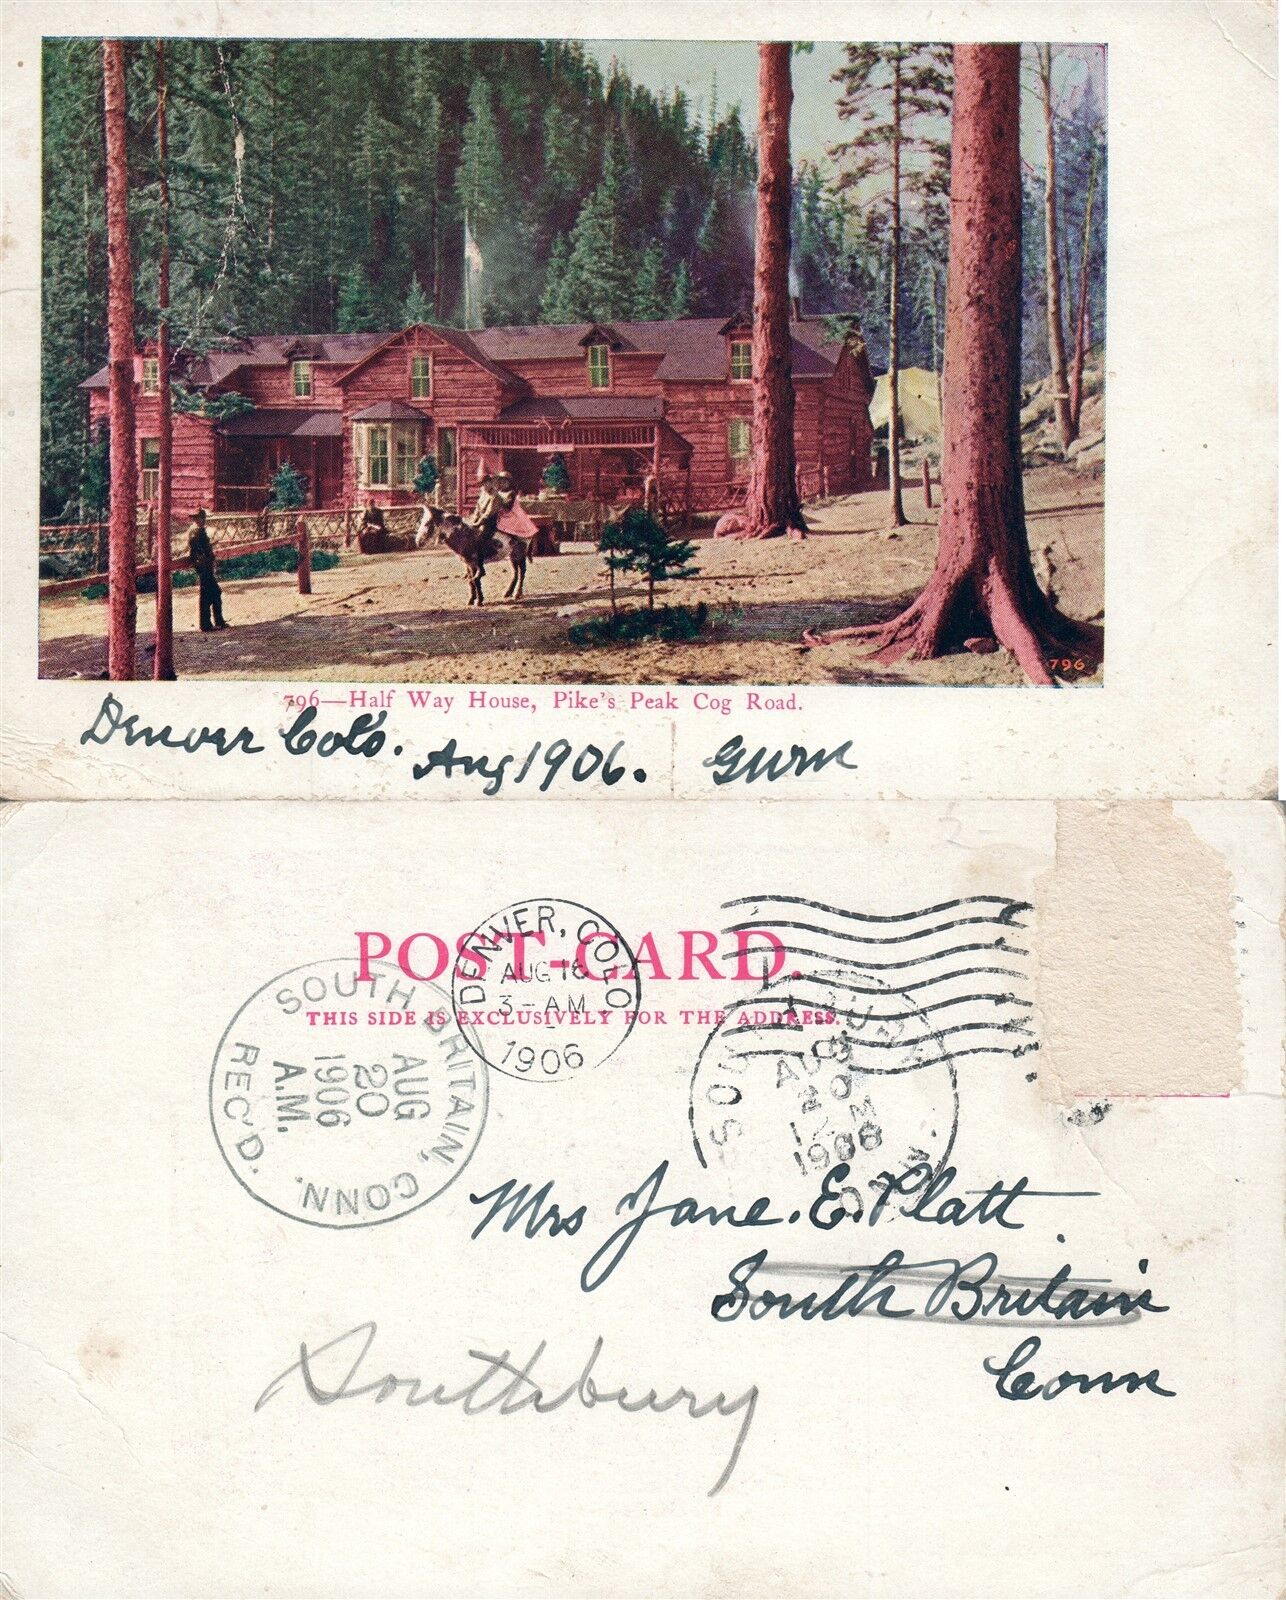 796
796—Half Way House, Pike's Peak Cog Road.
Denver Colo.
Aug 1906.
POST-CARD.
THIS SIDE IS EXCLUSIVELY FOR THE ADDRESS.
DENVER, COLO
3-AM
1906
SOUTH BRITAIN, CONN.
AUG
20
1906
A.M.
REC'D.
AUG
20
12 M
1906
Mrs Jane. E. Platt
South Britain
Conn
Southbury